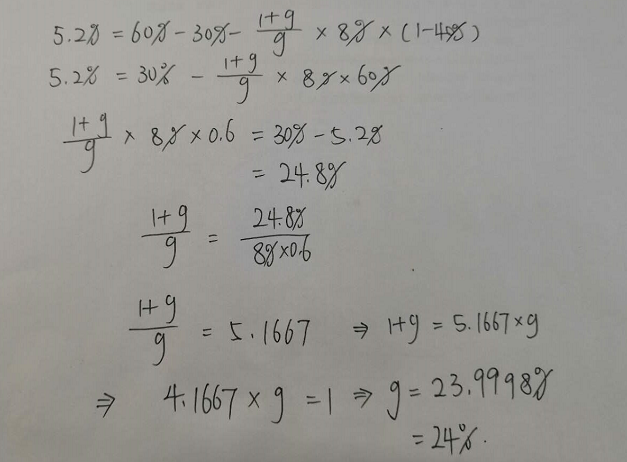 5.2% = 60% - 30% - (1+g)/g × 8% × (1-40%)
5.2% = 30% - (1+g)/g × 8% × 60%
(1+g)/g × 8% × 0.6 = 30% - 5.2%
= 24.8%
(1+g)/g = 24.8%/(8%×0.6)
(1+g)/g = 5.1667 ⇒ 1+g = 5.1667×g
⇒ 4.1667 × g = 1 ⇒ g = 23.9998%
= 24%.